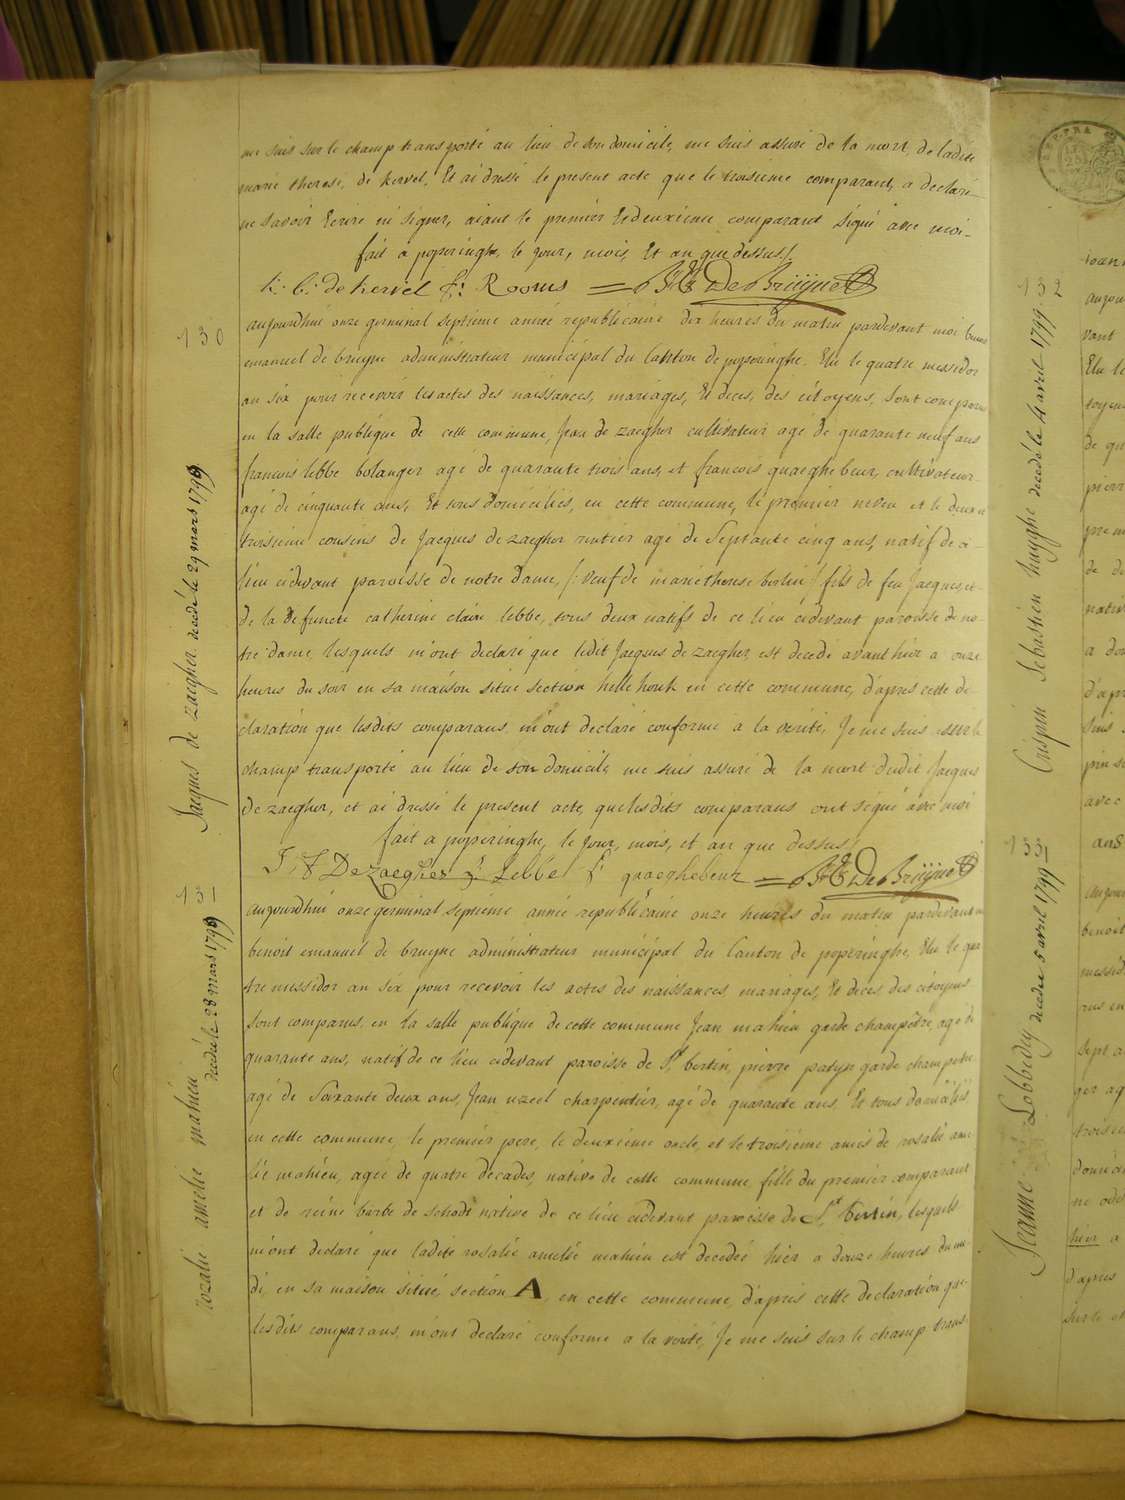 me suis sur le champ transporté au lieu de son domicile, me suis assuré de la mort de ladite
marie therese, de kervel, Et ai dressé le present acte que le troisieme comparant, a declaré
ne savoir Ecrire ni signer, aiant le premier et deuxieme comparant signé avec moi
fait a poperinghe, le jour, mois, Et an que dessus/.
De Bruyne
130
aujourdhui onze germinal septieme année republicaine dix heures du matin pardevant moi
emanuel de bruyne administrateur municipal du Canton de poperinghe. Elu le quatre messidor
an six pour recevoir les actes des naissances, mariages, Et deces, des citoyens, sont comparus
en la salle publique de cette commune, Jean de zaegher cultivateur agé de quarante neuf ans
francois lebbe bolanger agé de quarante trois ans, et francois quaeghebeur, cultivateur
agé de cinquante ans, Et tous domiciliés, en cette commune, le premier neveu et le deux et
troisieme cousins de Jacques de zaegher rentier agé de Septante cinq ans, natif de ce
lieu cidevant paroisse de notre dame, /: veuf de marie therese bertin :/ fils de feu Jacques, et
de la defuncte catherine claire lebbe, tous deux natifs de ce lieu cidevant paroisse de no-
tre dame, lesquels m'ont declaré que ledit Jacques de zaegher, est decedé avant hier a onze
heures du soir en sa maison situé section helle houk en cette commune, d'apres cette de
claration que lesdits comparans m'ont declaré conforme a la verité, Je me suis sur le
champ transporté au lieu de son domicile, me suis assuré de la mort dudit Jacques
De zaegher, et ai dressé le present acte, que lesdits comparans ont signé avec moi
fait a poperinghe, le Jour, mois, et an que dessus/.
Dezaegher Lebbe f quaeghebeur De Bruyne
Jacques de zaegher decedé le 29 mars 1799
131
aujourdhui onze germinal septieme année republicaine onze heures du matin pardevant
benoit emanuel de bruyne administrateur municipal du Canton de poperinghe, Elu le qua
tre messidor an six pour recevoir les actes des naissances, mariages, Et deces, des citoyens
sont comparus, en la salle publique de cette commune Jean mahieu garde champetre, agé de
quarante ans, natif de ce lieu cidevant paroisse de St bertin, pierre patyn garde champetre
agé de Soixante deux ans, Jean uzeel charpentier, agé de quarante ans, Et tous domiciliés
en cette commune, le premier pere, le deuxieme oncle, et le troisieme amis de rosalie ame
lie mahieu, agée de quatre decades, native de cette commune, fille du premier comparant
et de reine barbe de schodt native de ce lieu cidevant paroisse de St bertin, lesquels
m'ont declaré que ladite rosalie amelie mahieu est decedée hier a douze heures du mi
di, en sa maison situé, section A, en cette commune, d'apres cette declaration que
lesdits comparans, m'ont declaré conforme a la verité, Je me suis sur le champ trans-
rozalie amelie mahieu decedé le 28 mars 1799
132
Crispin Sebastien huyghe decedé le 4 avril 1799
133
Jeanne Lobbedey decedee 5 avril 1799